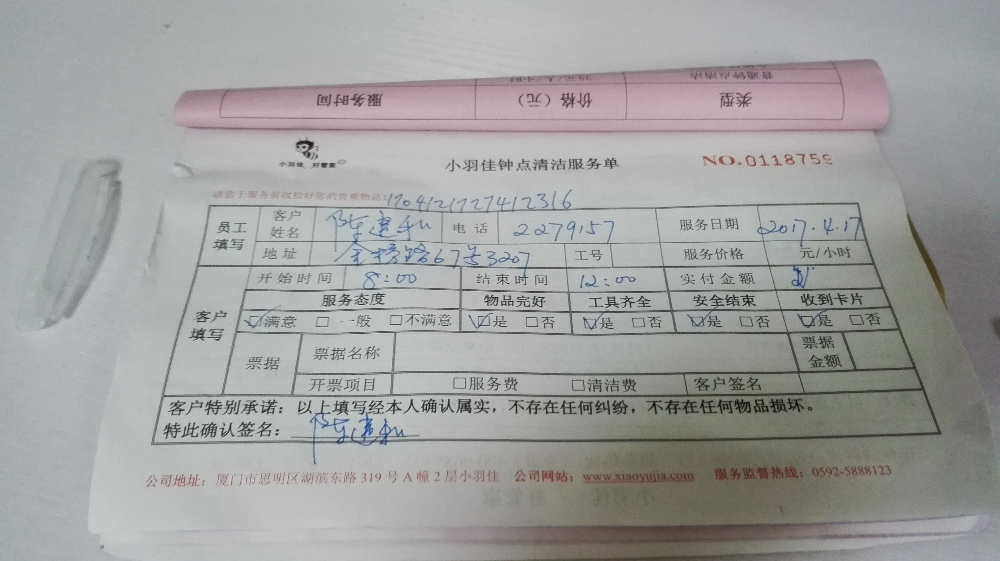 服务时间 价格（元） 类型
小羽佳 好管家
小羽佳钟点清洁服务单 NO.0118759
请您于服务前收拾好您的贵重物品：
员工填写 客户姓名 陈建和 电话 2279157 服务日期 2017.4.17
地址 金榜路67号3207 工号 服务价格 元/小时
客户填写 开始时间 8:00 结束时间 12:00 实付金额
服务态度 物品完好 工具齐全 安全结束 收到卡片
☑满意 □一般 □不满意 ☑是 □否 ☑是 □否 ☑是 □否 ☑是 □否
票据 票据名称 票据金额
开票项目 □服务费 □清洁费 客户签名
客户特别承诺：以上填写经本人确认属实，不存在任何纠纷，不存在任何物品损坏。
特此确认签名： 陈建和
公司地址：厦门市思明区湖滨东路 319 号 A 幢 2 层小羽佳 公司网站：www.xiaoyujia.com 服务监督热线：0592-5888123